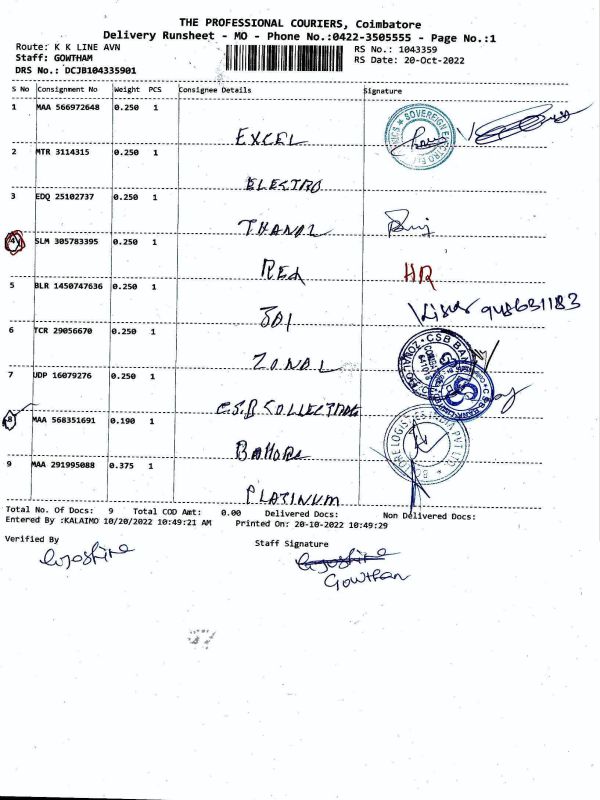 THE PROFESSIONAL COURIERS, Coimbatore
Delivery Runsheet - MO - Phone No.:0422-3505555 - Page No.:1
Route: K K LINE AVN
RS No.: 1043359
Staff: GOWTHAM
RS Date: 20-Oct-2022
DRS No.: DCJB104335901
S No Consignment No Weight PCS Consignee Details Signature
1 MAA 566972648 0.250 1
EXCEL
2 MTR 3114315 0.250 1
ELECTRO
3 EDQ 25102737 0.250 1
4 SLM 305783395 0.250 1
Red HR
5 BLR 1450747636 0.250 1
JAI
6 TCR 29056670 0.250 1
ZONAL
7 UDP 16079276 0.250 1
8 MAA 568351691 0.190 1
9 MAA 291995088 0.375 1
PLATINUM
Total No. Of Docs: 9 Total COD Amt: 0.00 Delivered Docs: Non Delivered Docs:
Entered By :KALAIMO 10/20/2022 10:49:21 AM Printed On: 20-10-2022 10:49:29
Verified By
Staff Signature
Gowtham